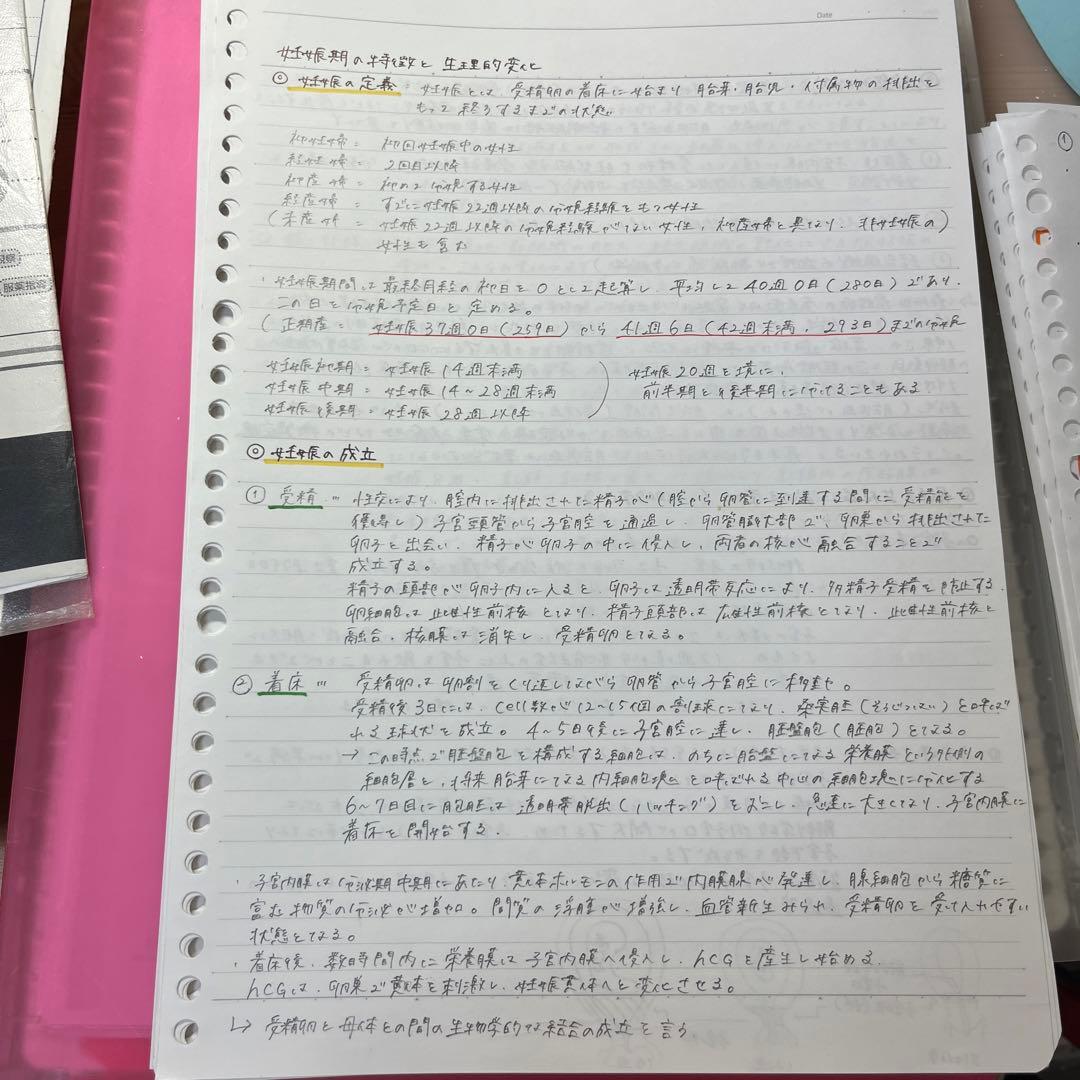 Date
妊娠期の特徴と生理的変化
◎ 妊娠の定義 : 妊娠とは、受精卵の着床に始まり 胎芽・胎児・付属物の排出を
もって終了するまでの状態
初妊婦 = 初回妊娠中の女性
経妊婦 = 2回目以降
初産婦 = 初めて分娩する女性
経産婦 = すでに妊娠22週以降の分娩経験をもつ女性
(未産婦 = 妊娠22週以降の分娩経験がない女性, 初産婦と異なり、非妊娠の)
女性も含む
・妊娠期間は最終月経の初日を0として起算し、平均して40週0日(280日)であり、
この日を分娩予定日と定める。
(正期産 = 妊娠37週0日(259日)から 41週6日(42週未満, 293日)までの分娩
妊娠初期 = 妊娠14週未満
妊娠中期 = 妊娠14〜28週未満
妊娠後期 = 妊娠28週以降
) 妊娠20週を境に、
前半期と後半期に分けることもある
◎ 妊娠の成立
① 受精 … 性交により、腟内に排出された精子が(腟から卵管に到達する間に受精能を
獲得し)子宮頸管から子宮腔を通過し、卵管膨大部で、卵巣から排出された
卵子と出会い、精子が卵子の中に侵入し、両者の核が融合することで
成立する。
精子の頭部が卵子内に入ると、卵子は透明帯反応により、多精子受精を防止する。
卵細胞は雌性前核となり、精子頭部は雄性前核となり、雌性前核と
融合、核膜は消失し、受精卵となる。
② 着床 … 受精卵は卵割をくり返しながら卵管から子宮腔に移動。
受精後3日には、cell数が12〜15個の割球になり、桑実胚(そうじつはい)と呼ば
れる球状を成立。4〜5日後に子宮腔に達し、胚盤胞(胚胞)となる。
→ この時点で胚盤胞を構成する細胞は、のちに胎盤になる栄養膜という外側の
細胞層と、将来胎芽になる内細胞塊と呼ばれる中心の細胞塊に分化する
6〜7日目に胞胚は透明帯脱出(ハッチング)をおこし、急速に大きくなり、子宮内膜に
着床を開始する。
・子宮内膜は分泌期中期にあたり、黄体ホルモンの作用で内膜腺が発達し、腺細胞から糖質に
富む物質の分泌が増加。間質の浮腫が増強し、血管新生みられ、受精卵を受け入れやすい
状態となる。
・着床後、数時間内に栄養膜は子宮内膜へ侵入し、hCGを産生し始める。
hCGは、卵巣で黄体を刺激し、妊娠黄体へと変化させる。
↳ 受精卵と母体との間の生物学的な結合の成立を言う
服薬指導
①